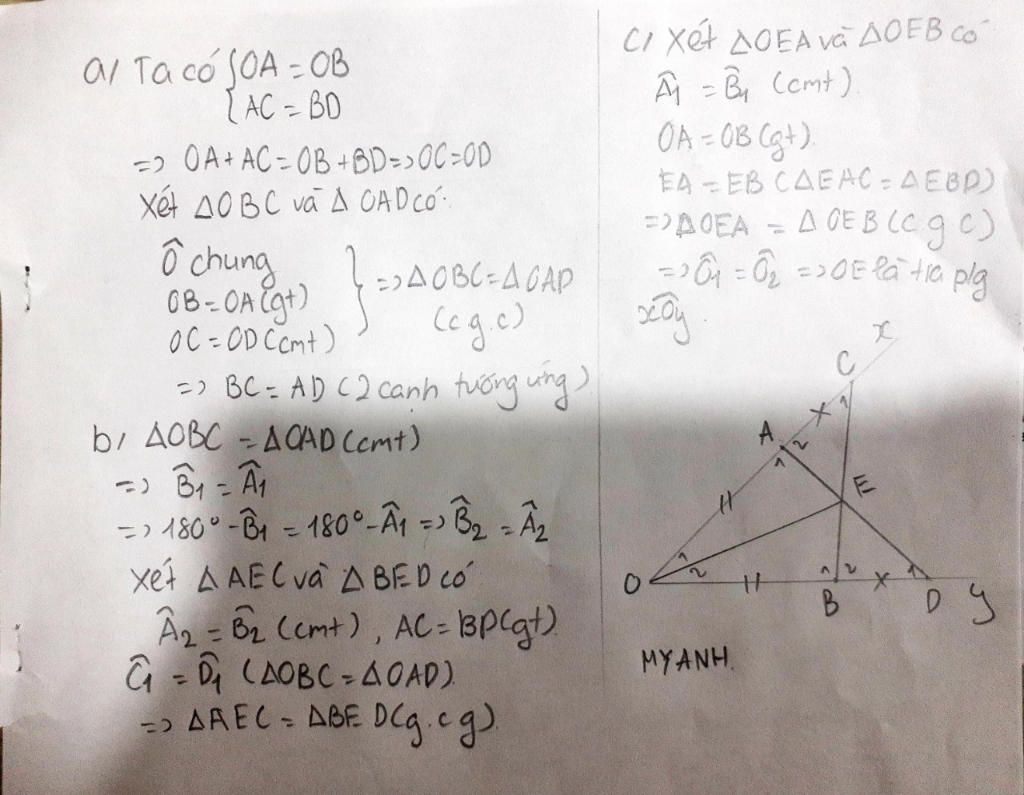 a/ Ta có { OA = OB
AC = BD
=> OA + AC = OB + BD => OC = OD
Xét ΔOBC và Δ OAD có:
Ô chung
OB = OA (gt)
OC = OD (cmt)
} => ΔOBC = ΔOAD
(c g.c)
=> BC = AD (2 cạnh tương ứng)
b/ ΔOBC = ΔOAD (cmt)
=> B̂1 = Â1
=> 180° - B̂1 = 180° - Â1 => B̂2 = Â2
Xét ΔAEC và ΔBED có
Â2 = B̂2 (cmt), AC = BD (gt)
Ĉ1 = D̂1 (ΔOBC = ΔOAD)
=> ΔAEC = ΔBED (g.c g)
C/ Xét ΔOEA và ΔOEB có
Â1 = B̂1 (cmt)
OA = OB (gt)
EA = EB (ΔEAC = ΔEBD)
=> ΔOEA = ΔOEB (c g c)
=> Ô1 = Ô2 => OE là tia p/g
xÔy.
x
C
1
A
1 2
E
O
1
2
1 2
1
B
D
y
MYANH.